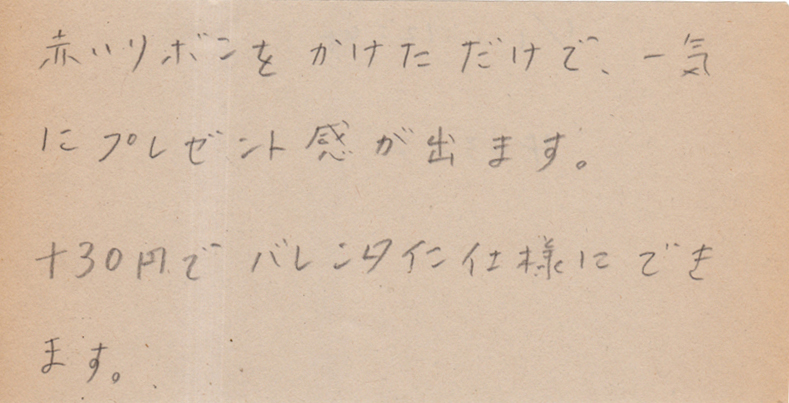 赤いリボンをかけただけで、一気
にプレゼント感が出ます。
+30円でバレンタイン仕様にでき
ます。